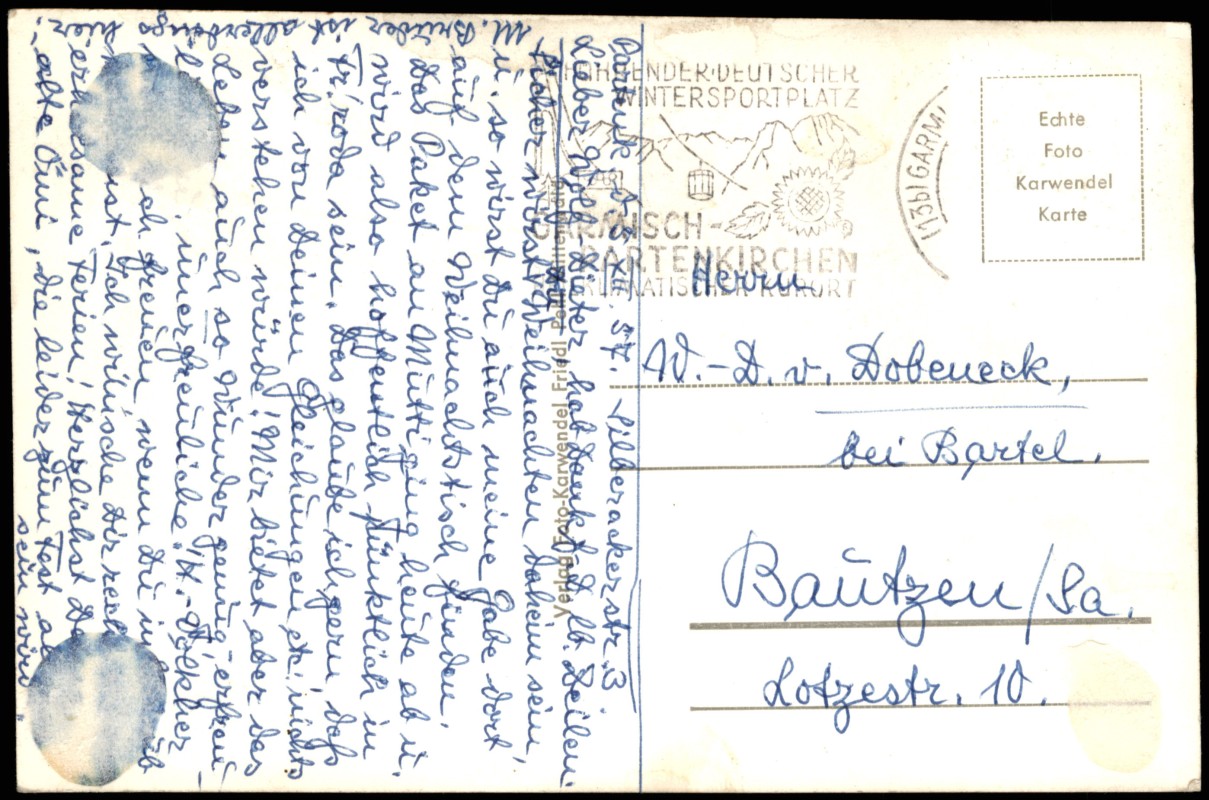 Partenk. 15. XII. 57. Silberackerstr. 3.
Lieber Wolf-Dieter, hab Dank f. D. lb. Zeilen.
Sicher wirst Weihnachten daheim sein,
u. so wirst Du auch meine Gabe dort
auf dem Weihnachtstisch finden.
Das Paket an Mutti ging heute ab u.
wird also hoffentlich pünktlich in
Fr'roda sein. Das glaube ich gern, daß
ich von Deinen Gleichungen etc. nichts
verstehen würde! Mir bietet aber das
Leben auch so Wunder genug - erfreu-
l u. unerfreuliche. "H.-Völkher
ich freuen, wenn Du in
ist. Ich wünsche Dir recht
erholsame Ferien! Herzlichst De
alte Omi, die leider zum Fest al
sein wird.
M. Bruder ist allerdings hier.
FÜHRENDER DEUTSCHER
WINTERSPORTPLATZ
GARMISCH-
PARTENKIRCHEN
KLIMATISCHER KURORT
(13b) GARMI
Echte
Foto
Karwendel
Karte
Verlag Foto-Karwendel Friedl
Herrn
W.-D. v. Dobeneck,
bei Bartel.
Bautzen/Sa.
Lotzestr. 10.